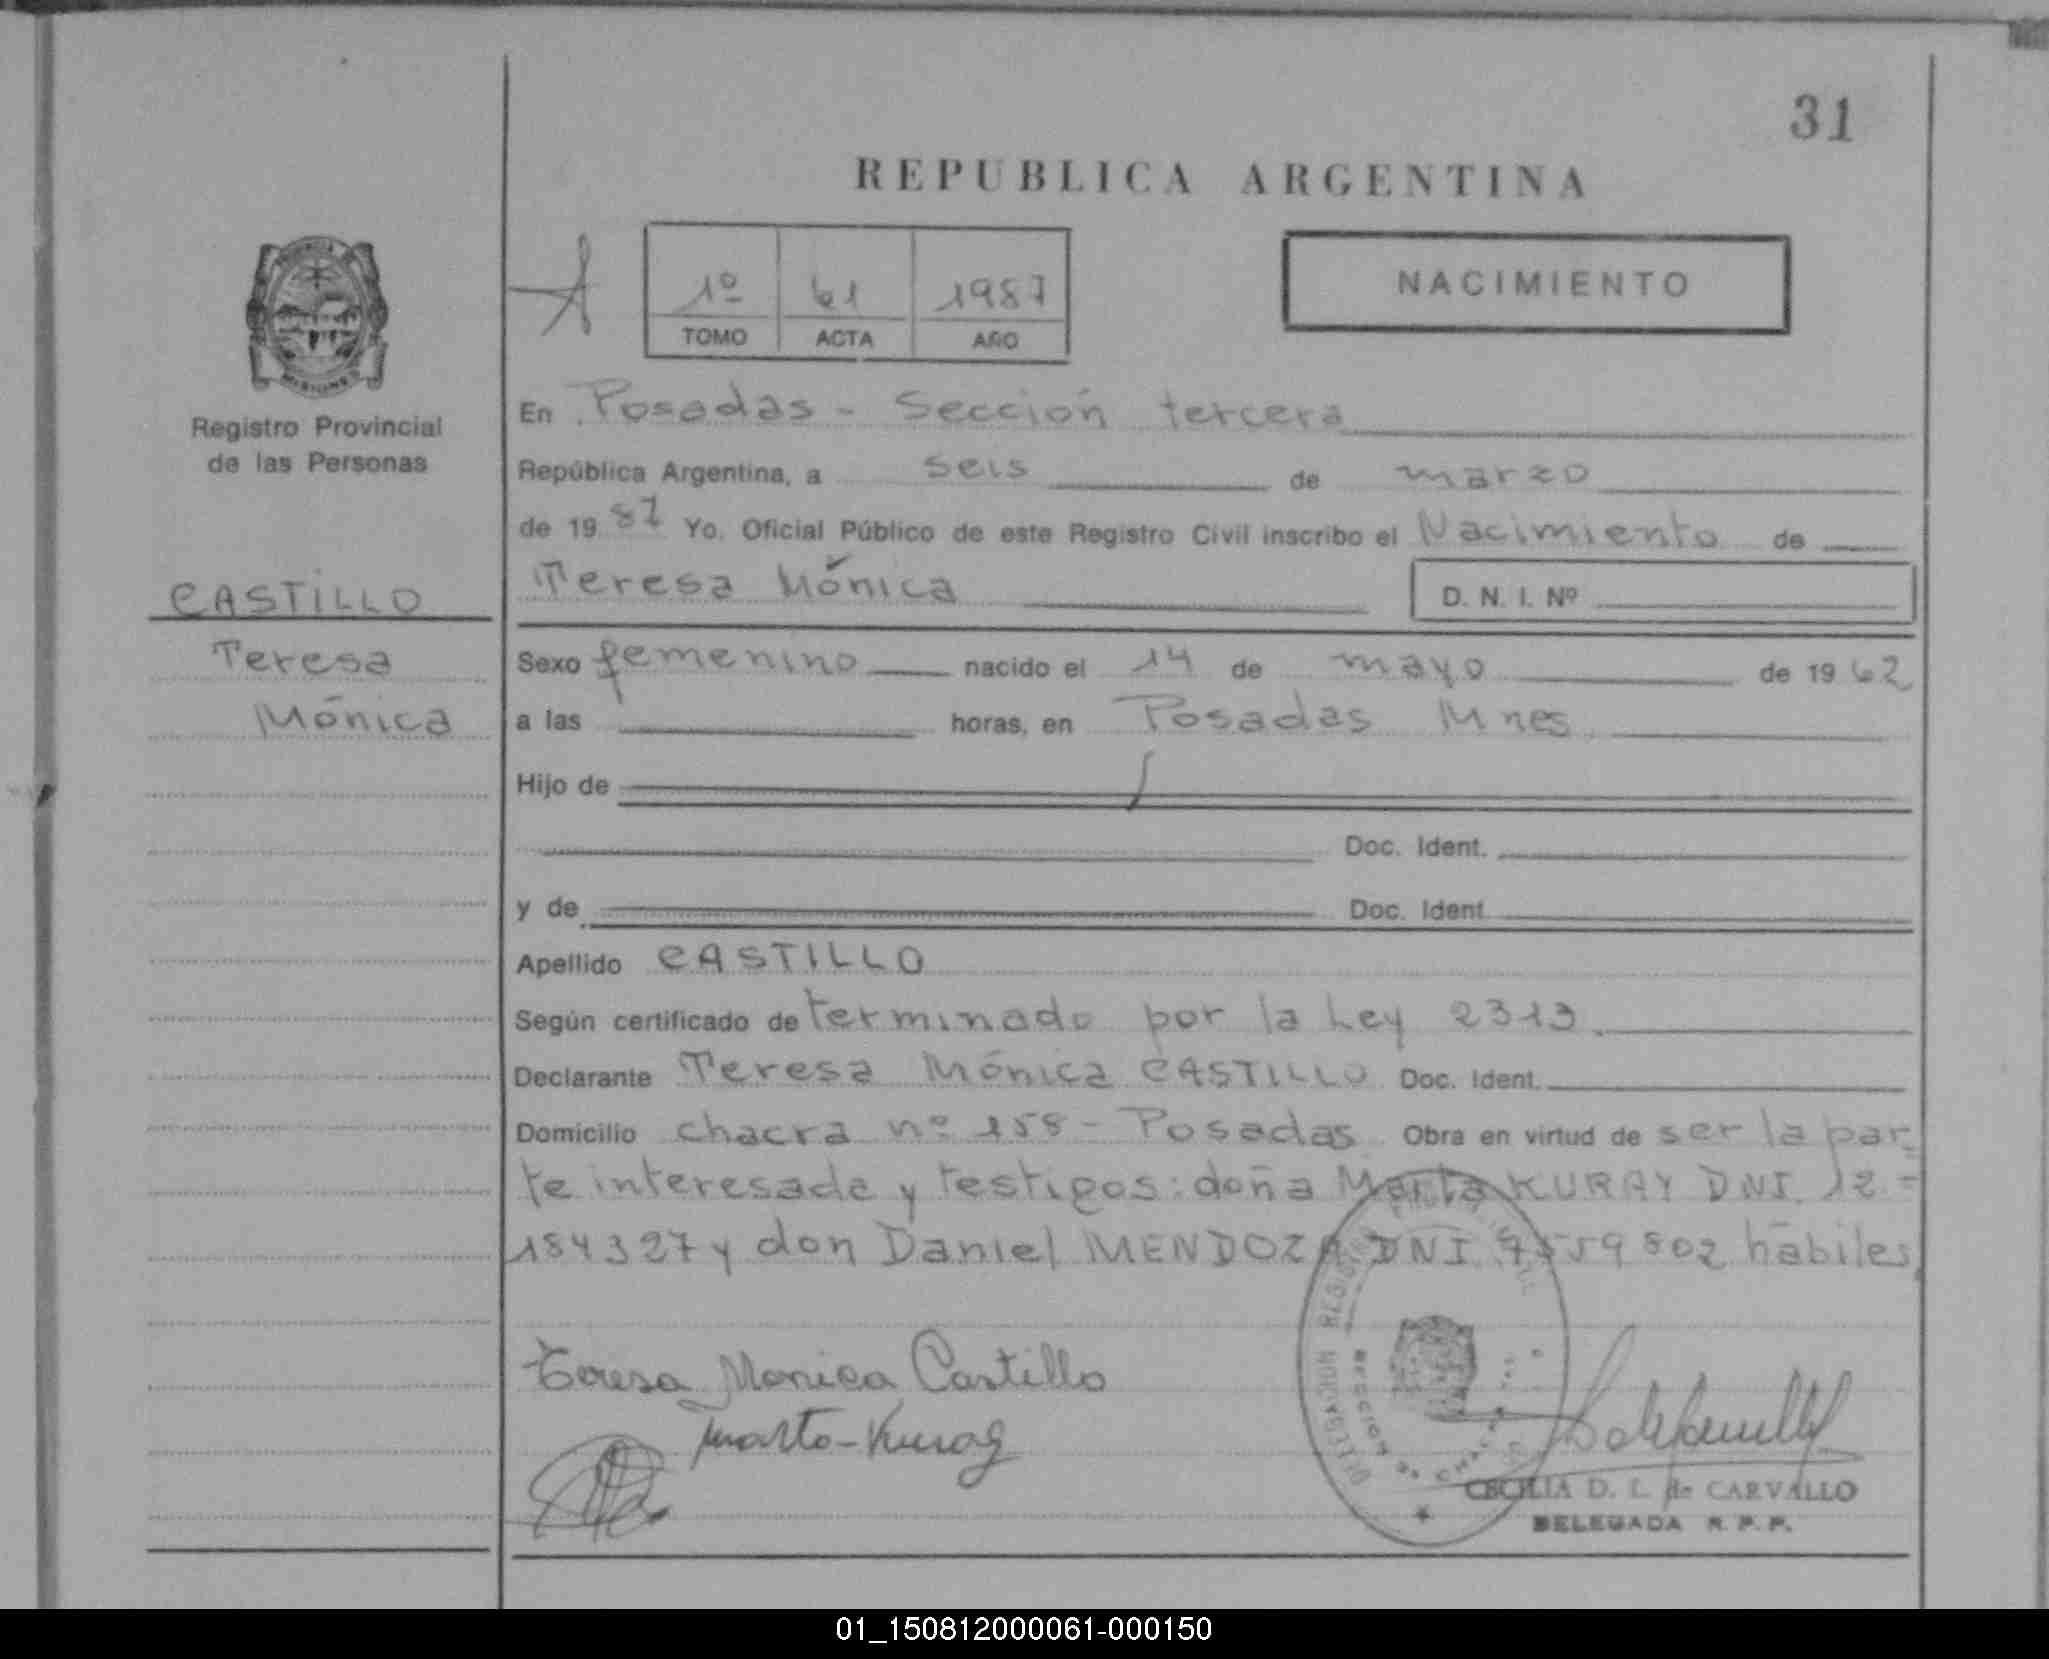 31
REPUBLICA ARGENTINA
1º 61 1987
TOMO ACTA AÑO
NACIMIENTO
MISIONES
Registro Provincial
de las Personas
CASTILLO
Teresa
Mónica
En Posadas - Sección tercera
República Argentina, a seis de marzo
de 1987 Yo, Oficial Público de este Registro Civil inscribo el Nacimiento de
Teresa Mónica D. N. I. Nº
Sexo femenino nacido el 14 de mayo de 1962
a las horas, en Posadas Mnes
Hijo de
Doc. Ident.
y de Doc. Ident.
Apellido CASTILLO
Según certificado determinado por la Ley 2313.
Declarante Teresa Mónica CASTILLO Doc. Ident.
Domicilio chacra nº 158 - Posadas Obra en virtud de ser la par=
te interesada y testigos: doña Marta KURAY DNI. 12-
184327 y don Daniel MENDOZA DNI 7559802 hábiles
Teresa Monica Castillo
Marta-Kuray
DELEGACION REGISTRO
SECCION
CECILIA D. L. de CARVALLO
DELEGADA R. P. P.
01_150812000061-000150